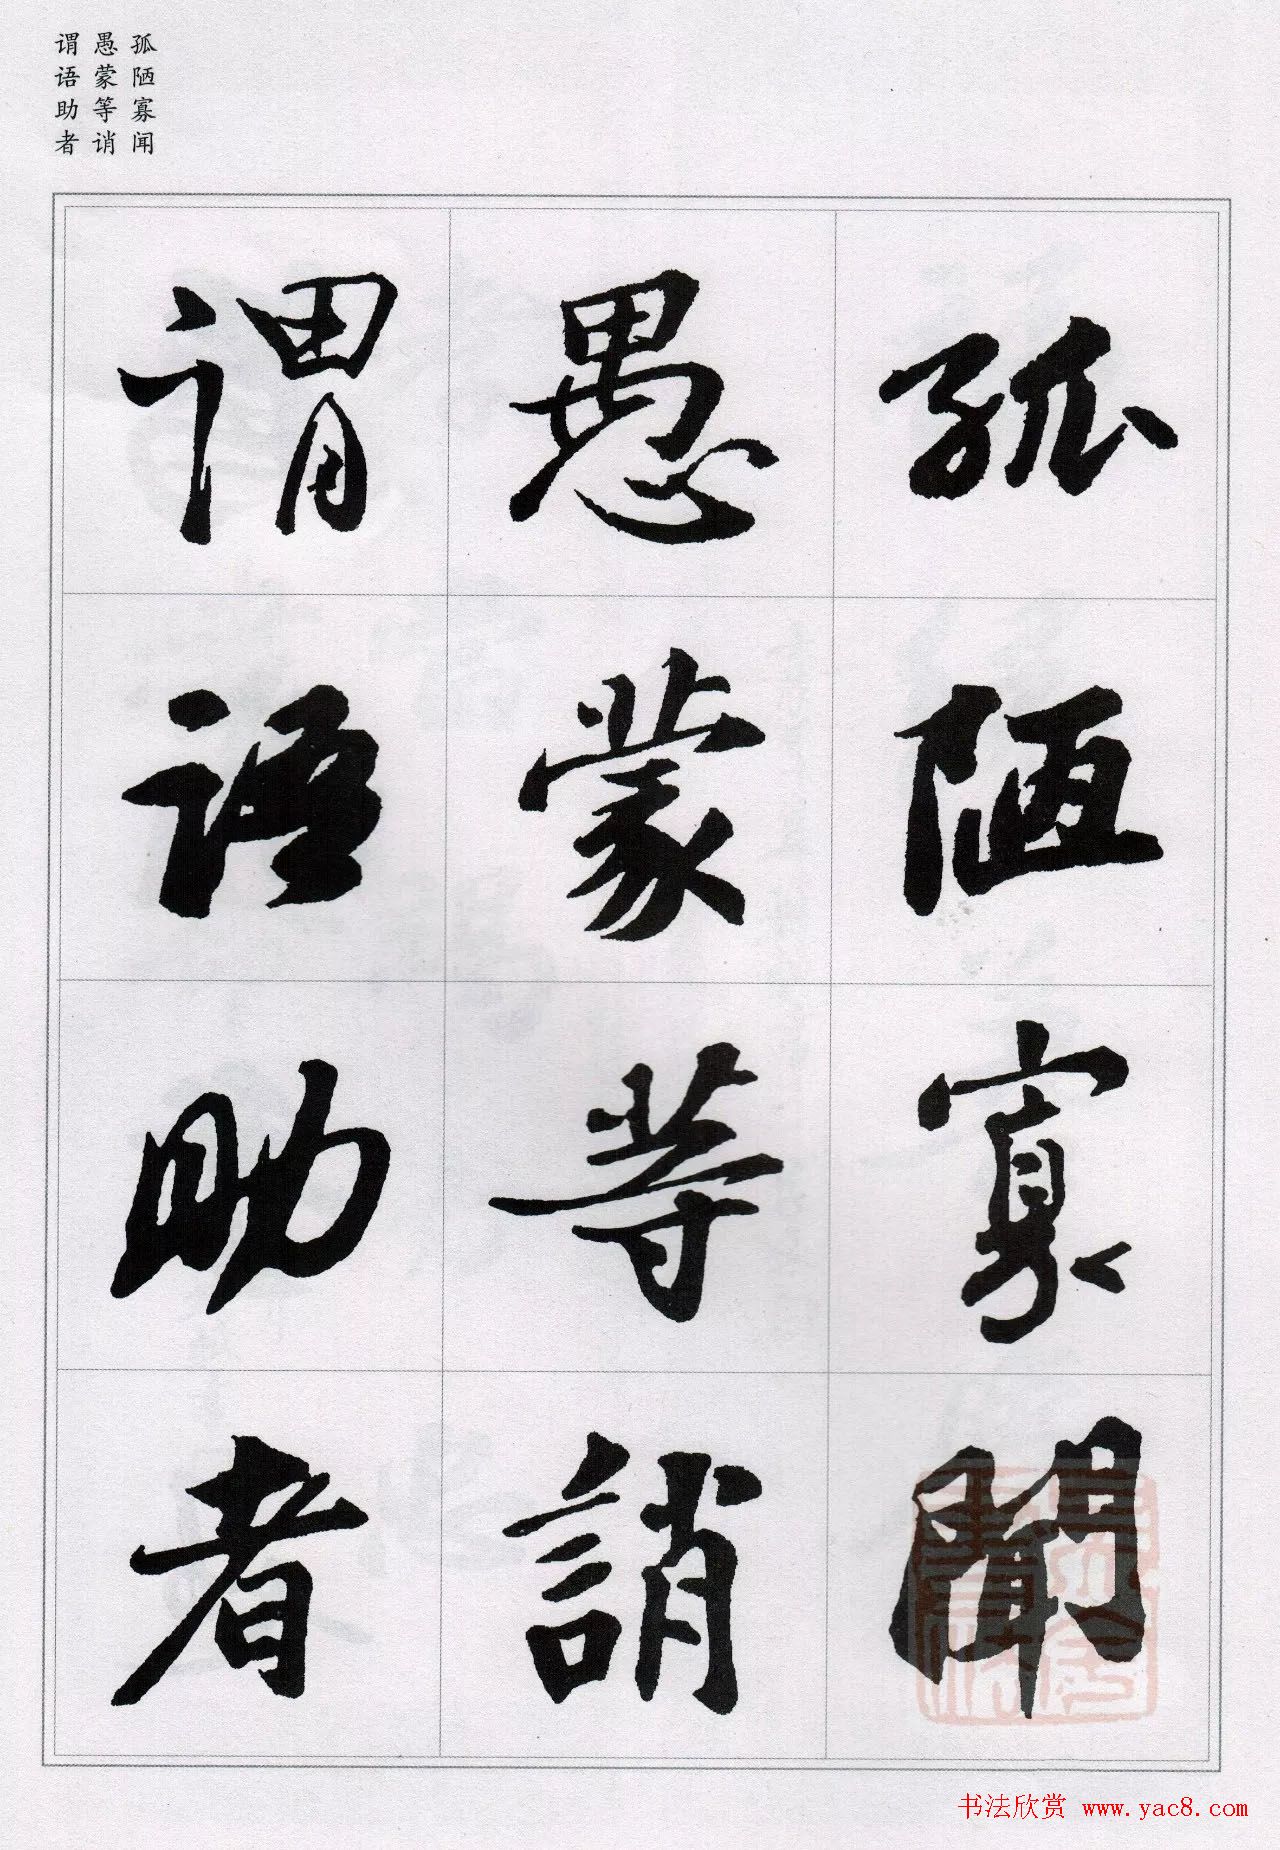 孤陋寡闻
愚蒙等诮
谓语助者
孤陋寡聞
愚蒙等誚
謂語助者
书法欣赏 www.yac8.com